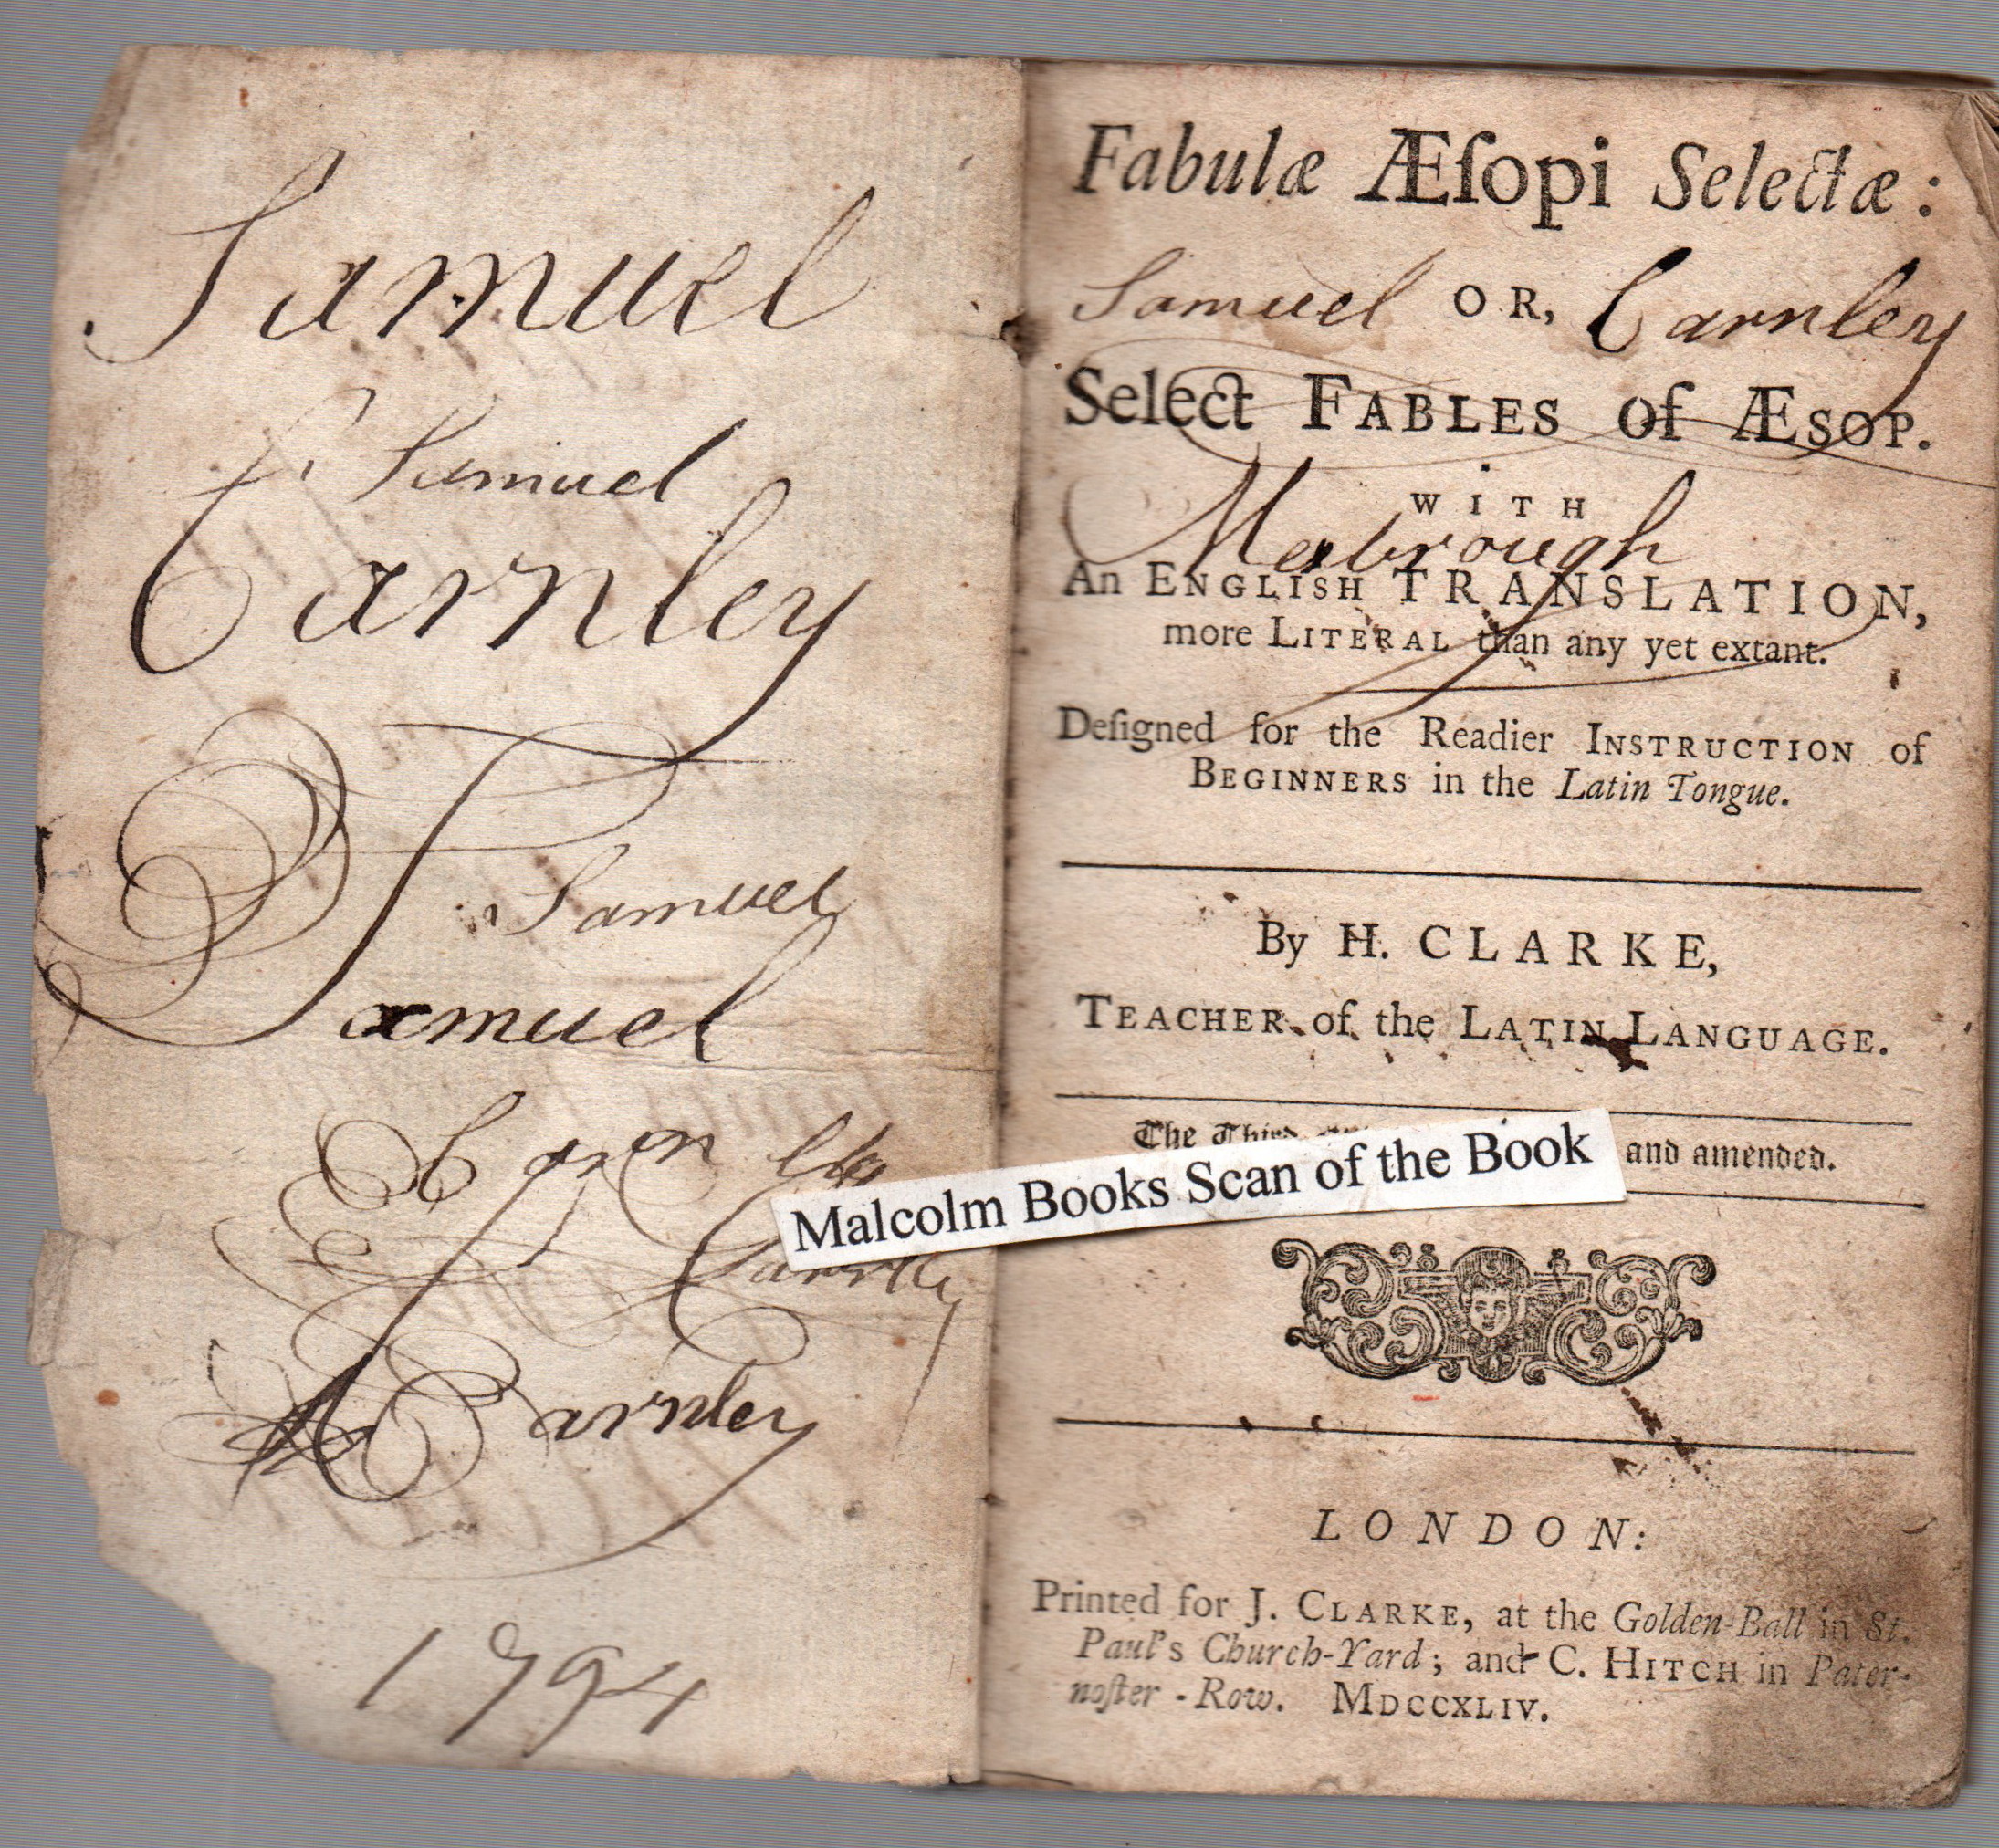 Samuel
Samuel
Carnley
Samuel
Samuel
Carnley
Carnley
1794
Fabulæ Æſopi Selectæ:
Samuel OR, Carnley
Select FABLES of ÆSOP.
WITH
Mexbrough
An ENGLISH TRANSLATION,
more LITERAL than any yet extant.
Deſigned for the Readier INSTRUCTION of
BEGINNERS in the Latin Tongue.
By H. CLARKE,
TEACHER of the LATIN LANGUAGE.
The Third and amended.
Malcolm Books Scan of the Book
LONDON:
Printed for J. CLARKE, at the Golden-Ball in St.
Paul's Church-Yard; and C. HITCH in Pater-
noſter-Row. MDCCXLIV.